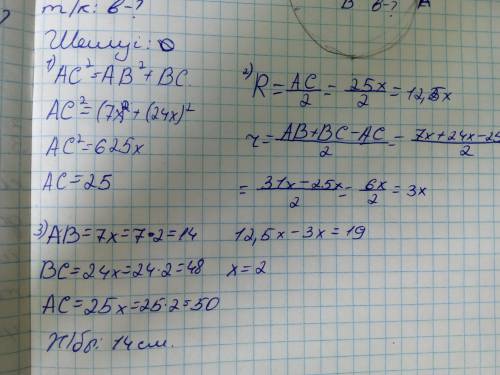 т/к: в-?
B в-? A
Шешуі:
1) AC²=AB²+BC.
AC²=(7x)²+(24x)²
AC²=625x
AC=25
2) R=AC/2=25x/2=12,5x
r=AB+BC-AC/2=7x+24x-25/2
=31x-25x/2=6x/2=3x
3) AB=7x=7•2=14
BC=24x=24·2=48
AC=25x=25·2=50
12,5x-3x=19
x=2
Ж/бы: 14см.